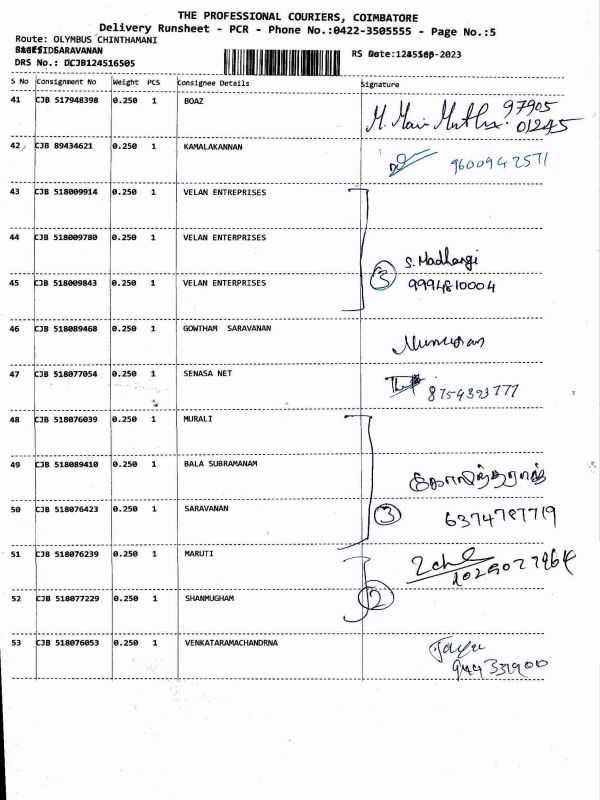 THE PROFESSIONAL COURIERS, COIMBATORE
Delivery Runsheet - PCR - Phone No.:0422-3505555 - Page No.:5
Route: OLYMBUS CHINTHAMANI
SARAVANAN
RS Date: Sep-2023
DRS No.: DCJB124516505
S No Consignment No Weight PCS Consignee Details Signature
41 CJB 517948398 0.250 1 BOAZ
97905
01245
42 CJB 89434621 0.250 1 KAMALAKANNAN
9600942571
43 CJB 518009914 0.250 1 VELAN ENTREPRISES
44 CJB 518009780 0.250 1 VELAN ENTERPRISES
S. Madhangi
45 CJB 518009843 0.250 1 VELAN ENTERPRISES
9994810004
46 CJB 518089468 0.250 1 GOWTHAM SARAVANAN
Murugan
47 CJB 518077054 0.250 1 SENASA NET
8754393777
48 CJB 518076039 0.250 1 MURALI
49 CJB 518089410 0.250 1 BALA SUBRAMANAM
50 CJB 518076423 0.250 1 SARAVANAN
3 6374787719
51 CJB 518076239 0.250 1 MARUTI
52 CJB 518077229 0.250 1 SHANMUGHAM 2
53 CJB 518076053 0.250 1 VENKATARAMACHANDRNA